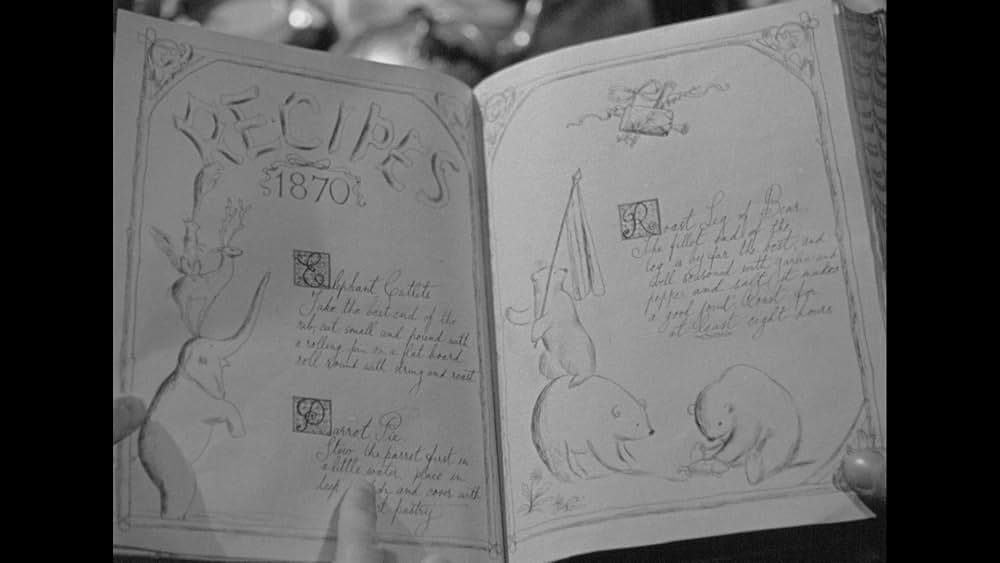 RECIPES
1870
Elephant Cutlets
Take the best end of the
rib, cut small and pound with
a rolling pin on a flat board
roll round with string and roast
Parrot Pie
Stew the parrot first in
a little water, place in
deep and cover with
pastry
Roast Leg of Bear
The fillet end of the
leg is by far the best and
well seasoned with garlic and
pepper and salt it makes
a good joint Roast for
at least eight hours